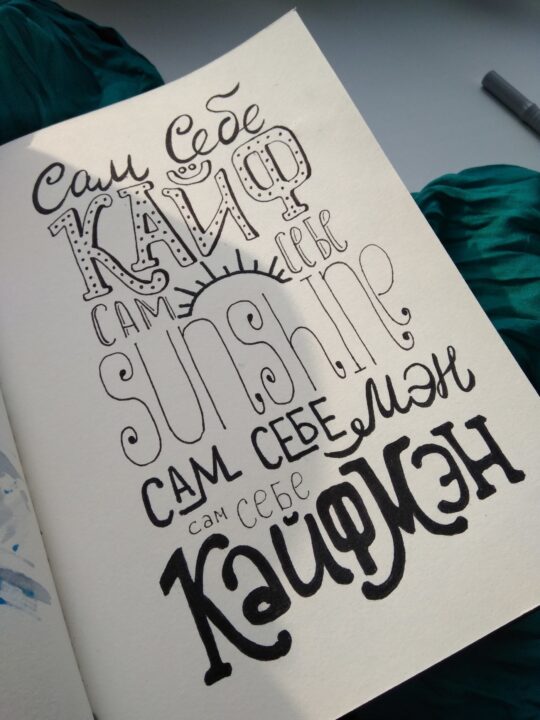 Сам Себе
КАЙФ
САМ СЕБЕ
SUNSHINE
САМ СЕБЕ МЭН
сам СЕБЕ
КайфМЭН